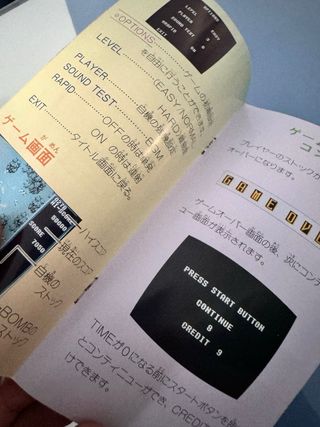 OPTIONS
LEVEL
ゲームの
を自由に行うことができます。
LEVEL
(EASY・NORMAL
HARD)
PLAYER
自機の
SOUND TEST
BGM
RAPID
OFFの時は単発
ONの時は連射
EXIT
タイトル画面に戻る。
ゲーム画面
がめん
HI-SCORE
SCORE
ハイスコア
現在のスコア
自機の
ストック
BOMBの
ストック
プレイヤーのストックが
オーバーになります。
GAME OVE
ゲームオーバー画面の後、次にコンティ
ュー画面が表示されます。
PRESS START BUTTON
CONTINUE
8
CREDIT 9
TIMEが0になる前にスタートボタンを
とコンティニューができ、CREDI
けできます。